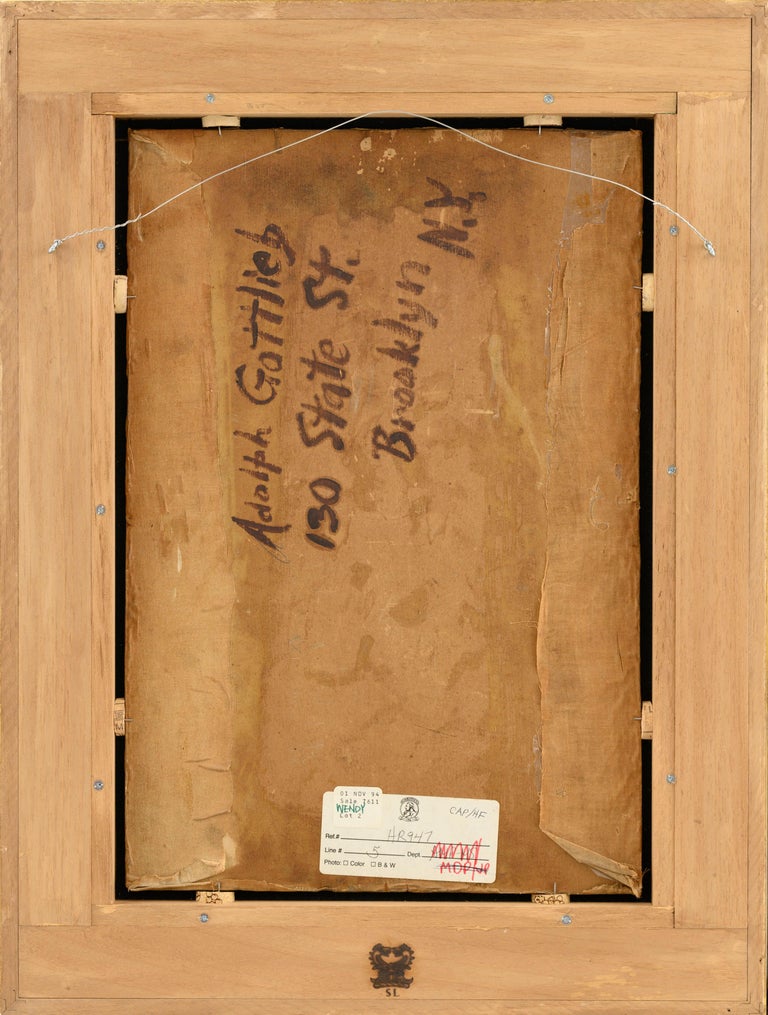 Adolph Gottlieb
130 State St.
Brooklyn
N.Y.
01 NOV 94
Sale 7611
WENDY
Lot 2
CAP/HF
Ref.# HR947
Line # 5 Dept.
MOD/
Photo: ☐ Color ☐ B & W
SL